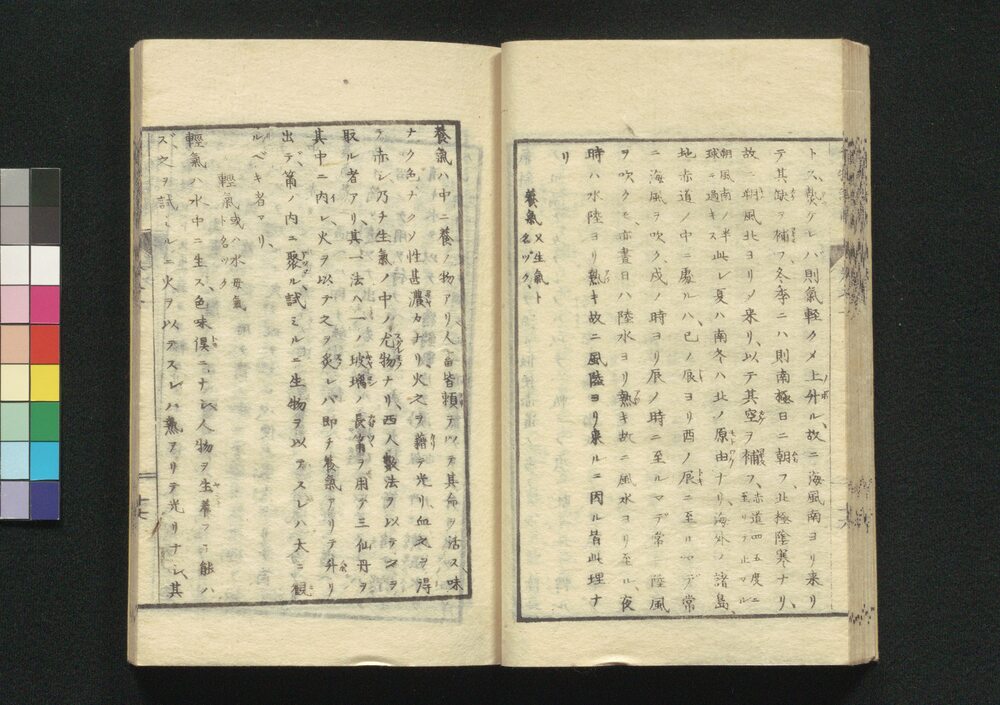 ト ス、熱ケレバ則氣軽クメ上升ル、故ニ海風南ヨリ来リ
テ其缺ヲ補フ、冬季ニハ則南極日ニ朝フ、北極陰寒ナリ、
故ニ朝風北ヨリメ来リ、以テ其空ヲ補フ、赤道四五度ニ至リテ止マル
朝風南ノ半 此レ夏ハ南冬ハ北ノ原由ナリ、海外ノ諸島、
球ニ過キス
地赤道ノ中ニ處ルハ、巳ノ辰ヨリ酉ノ辰ニ至ルマデ常
ニ海風ヲ吹ク、戍ノ時ヨリ辰ノ時ニ至ルマデ常ニ陸風
ヲ吹クモ、亦晝日ハ陸水ヨリ熱キ故ニ風水ヨリ至ル、夜
時ハ水陸ヨリ熱キ故ニ風陸ヨリ来ルニ因ル皆此理ナ
リ
養氣 又生氣ト名ヅク、
養氣ハ中ニ養ノ物アリ人畜皆頼テ以テ其命ヲ活ス、味
ナク色ナクメ性甚濃カナリ、火之ヲ藉テ光リ、血之ヲ得
テ赤シ乃チ生氣ノ中ノ尤物ナリ、西人數法ヲ以テ之ヲ
取ル者アリ其一法ハ一ノ玻璃ノ長筩ヲ用テ三仙丹ヲ
其中ニ内レ、火ヲ以テ之ヲ炙レバ即チ養氣アリテ升リ
出デ、筩ノ内ニ聚ル試ミルニ生物ヲ以テスレハ大ニ觀
ルベキ者アリ、
輕氣 或ハ水母氣ト名ヅク
輕氣ハ水中ニ生ス、色味倶ニナシ、人物ヲ生養フコ能ハ
ズ、之ヲ試ミルニ火ヲ以テスレハ熱アリテ光リナシ、其
十七